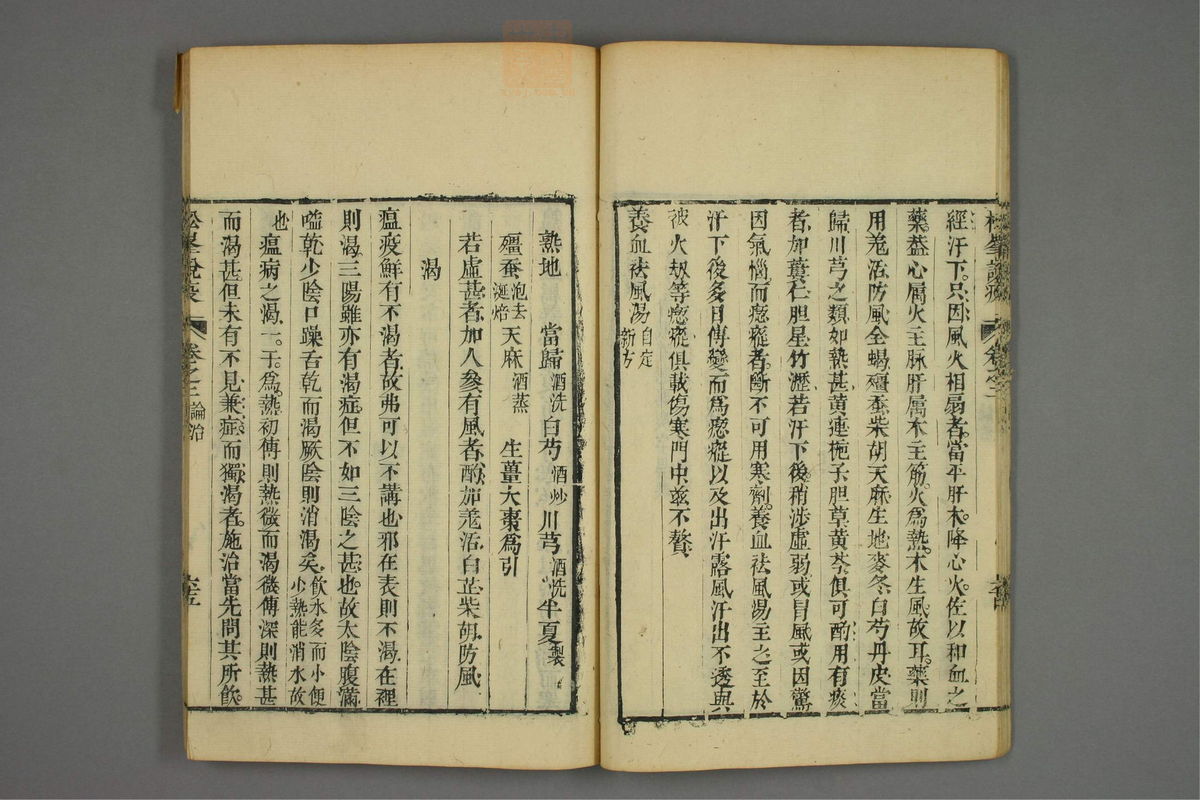 松峯說疫 卷之三
經汗下。只因風火相扇者。當平肝木。降心火。佐以和血之
藥。蓋心屬火主脉。肝屬木主筋。火為熱。木生風故耳。藥則
用羗活。防風。全蝎。殭蚕。柴胡。天麻。生地。麥冬。白芍。丹皮。當
歸。川芎之類。如熱甚。黃連。梔子。胆草。黃芩。俱可酌用。有痰
者。加蔞仁。胆星。竹瀝。若汗下後。稍涉虛弱。或冒風。或因驚
因氣惱。而瘛瘲者。斷不可用寒劑。養血祛風湯主之。至於
汗下後多日傳變。而為瘛瘲以及出汗露風。汗出不透。與
被火刼等瘛瘲。俱載傷寒門中。兹不贅。
養血祛風湯 自定新方
熟地 當歸 酒洗 白芍 酒炒 川芎 酒洗 半夏 製
殭蚕 泡去涎焙 天麻 酒蒸 生薑大棗為引
若虛甚者。加人參。有風者。酌加羗活。白芷。柴胡。防風。
渴
瘟疫鮮有不渴者。故弗可以不講也。邪在表則不渴。在裡
則渴。三陽雖亦有渴症。但不如三陰之甚也。故太陰腹滿
嗌乾。少陰口躁舌乾而渴。厥陰則消渴矣。飲水多而小便少熱能消水故
也 瘟病之渴。一于為熱。初傳則熱微而渴微。傳深則熱甚
而渴甚。但未有不見兼症而獨渴者。施治當先問其所飲。
松峯說疫 卷之三 論治